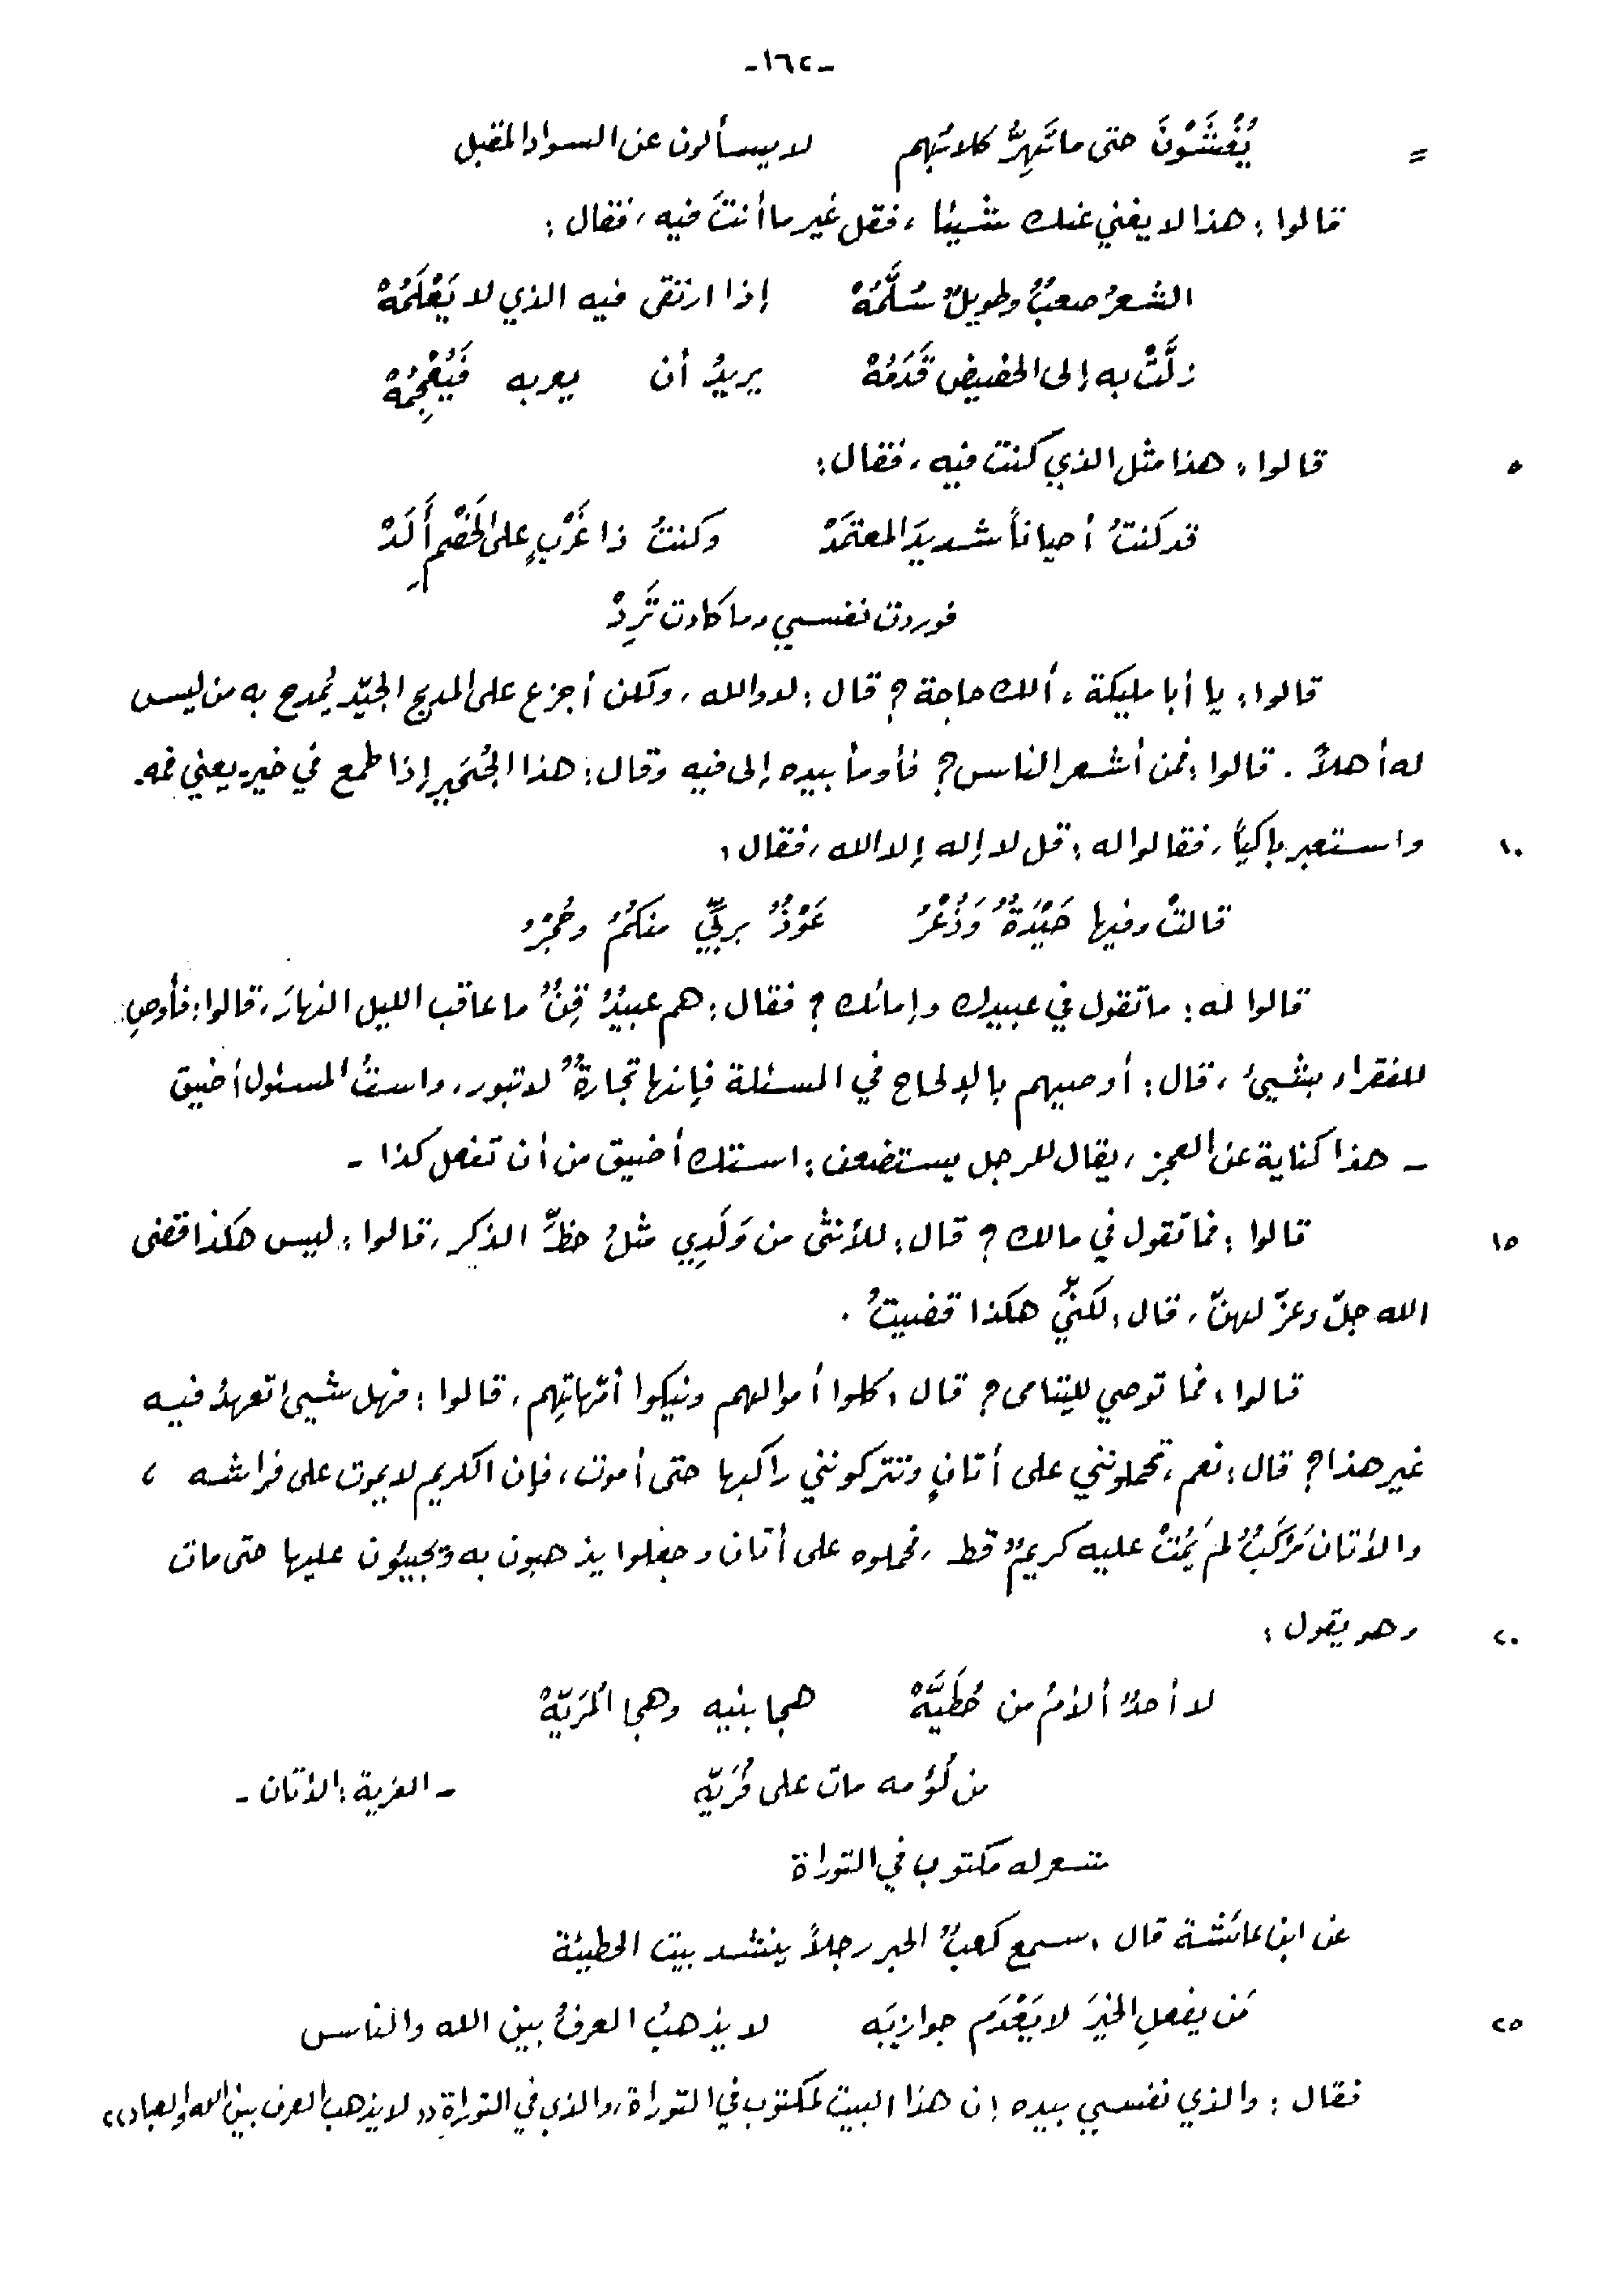 -١٦٢-
= يُغْشَوْنَ حتى ما تَهِرُّ كلابُهم لا يسألون عن السواد المقبل
قالوا: هذا لا يغني عنك شيئا، فقل غير ما أنتَ فيه، فقال:
الشعرُ صعبٌ وطويلٌ سُلَّمُهْ إذا ارتقى فيه الذي لا يَعْلَمُهْ
زلَّتْ به إلى الحضيض قَدَمُهْ يريدُ أن يعربه فَيُعْجِمُهْ
٥ قالوا: هذا مثل الذي كنت فيه، فقال:
قد كنتُ أحياناً شديدَ المعتمَدْ وكنتُ ذا غَرْبٍ على الخَصْمِ أَلَدْ
فوردت نفسي وما كادت تَرِدْ
قالوا: يا أبا مليكة، ألك حاجة؟ قال: لا والله، ولكن أجزع على المديح الجيّد يُمدح به من ليس
له أهلاً. قالوا: فمن أشعر الناس؟ فأومأ بيده إلى فيه وقال: هذا الجُحَير إذا طمع في خير - يعني فمه -
١٠ واستعبر باكياً، فقالوا له: قل لا إله إلا الله، فقال:
قالتْ وفيها حَيْدَةٌ وَذُعْرُ عَوْذٌ بربِّي منكمُ وحُجْرُ
قالوا له: ما تقول في عبيدك وإمائك؟ فقال: هم عبيدٌ قِنٌّ ما عاقب الليل النهارَ، قالوا: فأوصِ
للفقراء بشيئ، قال: أوصيهم بالإلحاح في المسئلة فإنها تجارةٌ لا تبور، واستُ المسئول أضيق
- هذا كناية عن العجز، يقال للرجل يستضعف: استك أضيق من أن تفعل كذا -
١٥ قالوا: فما تقول في مالك؟ قال: للأنثى من وَلَدِي مثلُ حظِّ الذكر، قالوا: ليس هكذا قضى
الله جلّ وعزّ لهنّ، قال: لكنّي هكذا قضيتُ.
قالوا: فما توصي لليتامى؟ قال: كلوا أموالهم ونيكوا أمّهاتِهم، قالوا: فهل شيئ تعهدُ فيه
غير هذا؟ قال: نعم، تحملونني على أتانٍ وتتركونني راكبها حتى أموت، فإن الكريم لا يموت على فراشه،
والأتان مَرْكَبٌ لم يَمُتْ عليه كريمٌ قط، فحملوه على أتان وجعلوا يذهبون به ويجيئون عليها حتى مات
٢٠ وهو يقول:
لا أحدٌ ألأمُ من حُطَيَّهْ هجا بنيه وهجا المُرَيّهْ
من لُؤمه مات على فُرَيّه - الفرية: الأتان -
شعر له مكتوب في التوراة
عن ابن عائشة قال: سمع كعبٌ الحبر رجلاً ينشد بيت الحطيئة
٢٥ مَن يفعلِ الخيرَ لا يَعْدَم جوازيَه لا يذهبُ العرفُ بين الله والناس
فقال: والذي نفسي بيده إن هذا البيت لمكتوب في التوراة، والذي في التوراة «لا يذهب العرف بين الله والعباد»